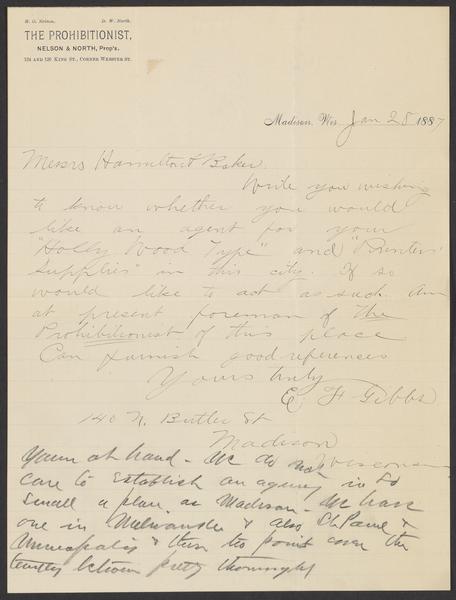 H. G. Nelson. D. W. North.
THE PROHIBITIONIST,
NELSON & NORTH, Prop's.
124 AND 126 KING ST., CORNER WEBSTER ST.
Madison, Wis. Jan 28 1887
Messrs Hamilton & Baker
Write you wishing
to know whether you would
like an agent for your
"Holly Wood Type" and "Printers'
Supplies" in this city. If so
would like to act as such. Am
at present foreman of The
Prohibitionist of this place
Can furnish good references
Yours truly
E F Gibbs
140 N. Butler St
Madison
Wisconsin
Yours at hand - We do not
care to establish an agency in so
small a place as Madison - We have
one in Milwaukee & also St. Paul &
Minneapolis & these two points cover the
between pretty thoroughly